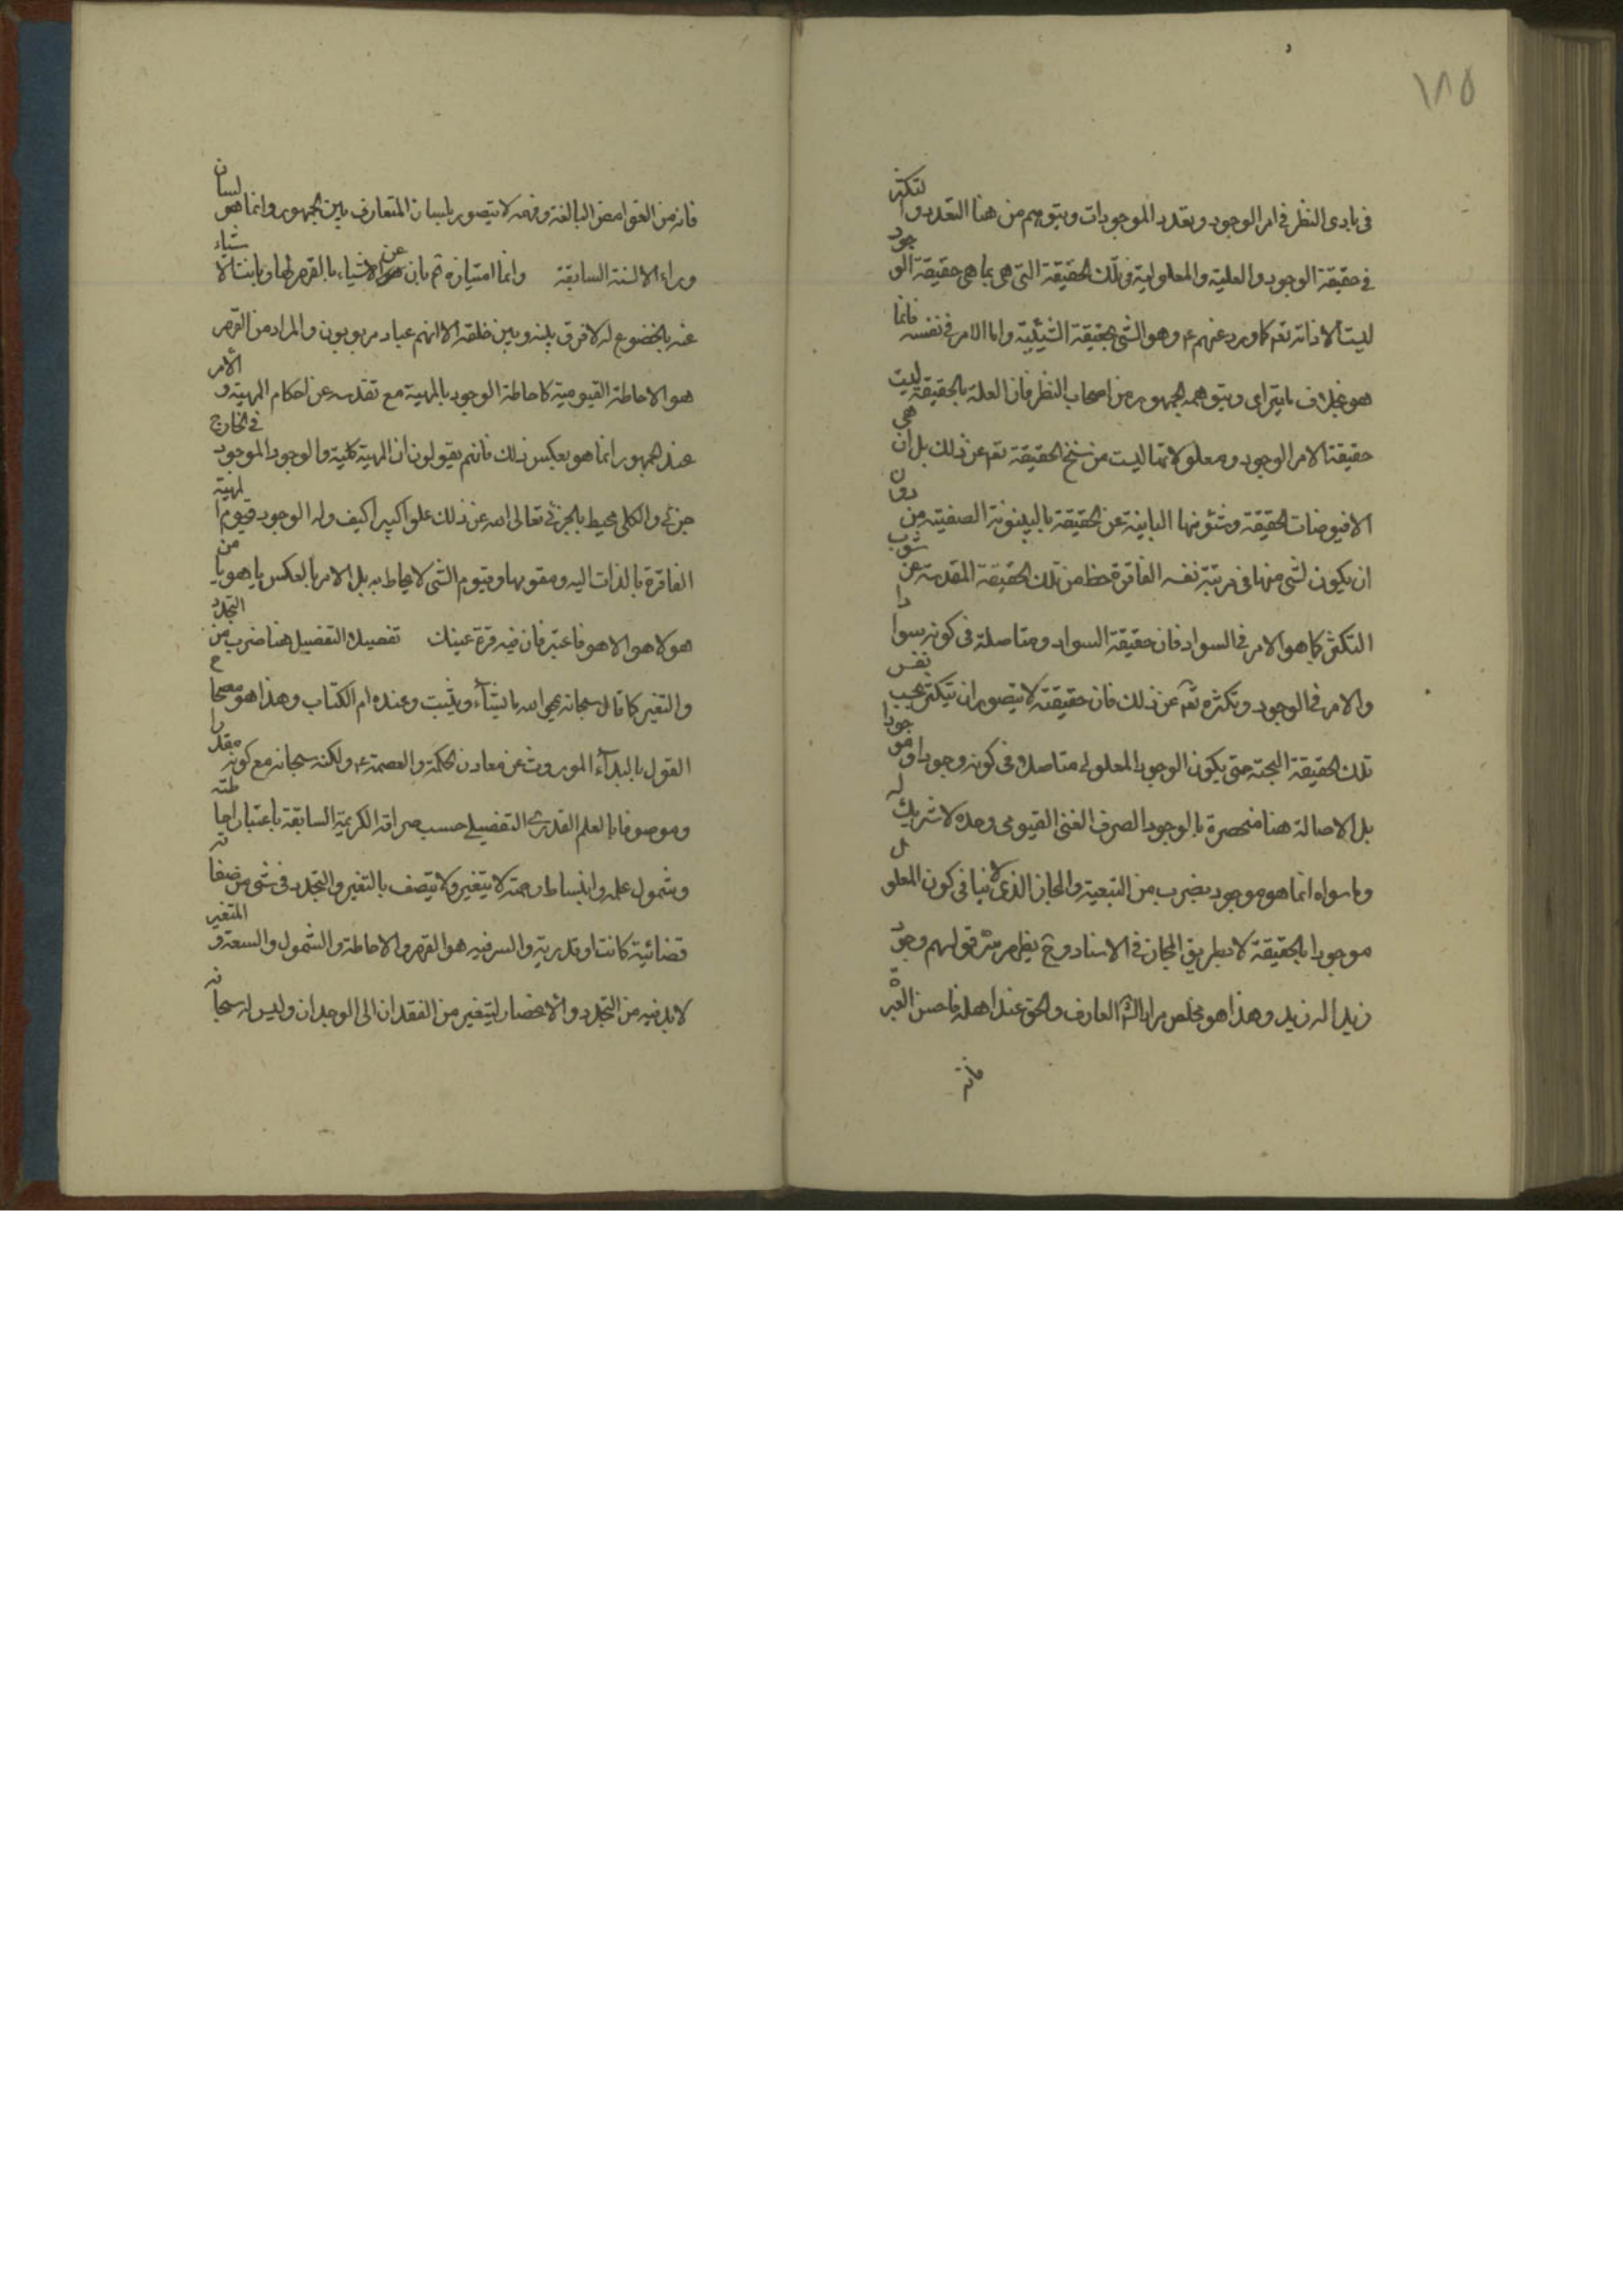 ١٨٥
فى بادى النظر فى امر الوجود وتعدد الموجودات ويتوهم من هنا التعدد والتكثر
فى حقيقة الوجود والعلية والمعلولية فى تلك الحقيقة التى هى بما هى حقيقة الوجود
ليست الا ذاته تعم كما ورد عنهم ع وهو الشئ بحقيقة الشيئية واما الامر فى نفسه فانما
هو بخلاف ما يترآى ويتوهمه الجمهور من اصحاب النظر فان العلة بالحقيقة ليست
حقيقتا الامر الوجود ومعلولاتها ليست من سنخ الحقيقة تعم عن ذلك بل ان هى
الا فيوضات الحقيقة وشئونها البائنة عن الحقيقة بالبينونة الصفتية من دون
ان يكون لشئ منها فى مرتبة نفسه الفاقرة حظ من تلك الحقيقة المقدسة عن شوب
التكثر كما هو الامر فى السواد فان حقيقة السواد ومتاصلة فى كونه سوادا
والامر فى الوجود وتكثره تعم عن ذلك فان حقيقته لا يتصور ان يتكثر بحسب نفس
تلك الحقيقة البحتة حتى يكون الوجود المعلولى متاصلا فى كونه وجودا وموجودا
بل الاصالة هنا منحصرة بالوجود الصرف الغنى القيومى وحده لا شريك له
وما سواه انما هو موجود بضرب من التبعية والمجاز الذى لا ينافى كون المعلول
موجودا بالحقيقة لا بطريق المجاز فى الاسناد وح يظهر سر قولهم وجود
زيد اله زيد وهذا هو مخلص مرام العارف والحق عند اهله فاحسن العبرة
فانه
فانه من الغوامض البالغة وفهمه لا يتصور بلسان المتعارف بين الجمهور وانما هو لسان
وراء الالسنة السابقة وانما امتيازه ثم بان عن الاشياء بالقهر لها وبانت الاشياء
عنه بالخضوع له لا فرق بينه وبين خلقه الا انهم عباد مربوبون والمراد من القهر
هو الاحاطة القيومية كاحاطة الوجود بالمهية مع تقدسه عن احكام المهية والامر
عند الجمهور انما هو بعكس ذلك فانهم يقولون ان المهية كلية والوجود الموجود فى الخارج
جزئى والكلى محيط بالجزئى تعالى الله عن ذلك علوا كبيرا كيف وله الوجود قيوم المهية
الفاقرة بالذات اليه ومقومها وقيوم الشئ لا يحاط به بل الامر بالعكس يا هو يا من
هو لا هو الا هو فاعتبر فان فيه قرة عينك تفصيل التفصيل هنا ضرب من التجدد
والتغير كما قال سبحانه يمحو الله ما يشاء ويثبت وعنده ام الكتاب وهذا هو مصحح
القول بالبداء الموروث عن معادن الحكمة والعصمة ع ولكنه سبحانه مع كونه مقدرا
وموصوفا بالعلم القدرى التفصيلى حسب صرافة الكريمة السابقة باعتبار احاطته
وشمول علمه وانبساط رحمته لا يتغير ولا يتصف بالتغير والتجدد فى شئ من صفاته
قضائية كانت او قدرية والسر فيه هو القهر والاحاطة والشمول والسعة والمتغير
لا بد فيه من التجدد والانحصار ليتغير من الفقدان الى الوجدان وليس له سبحانه